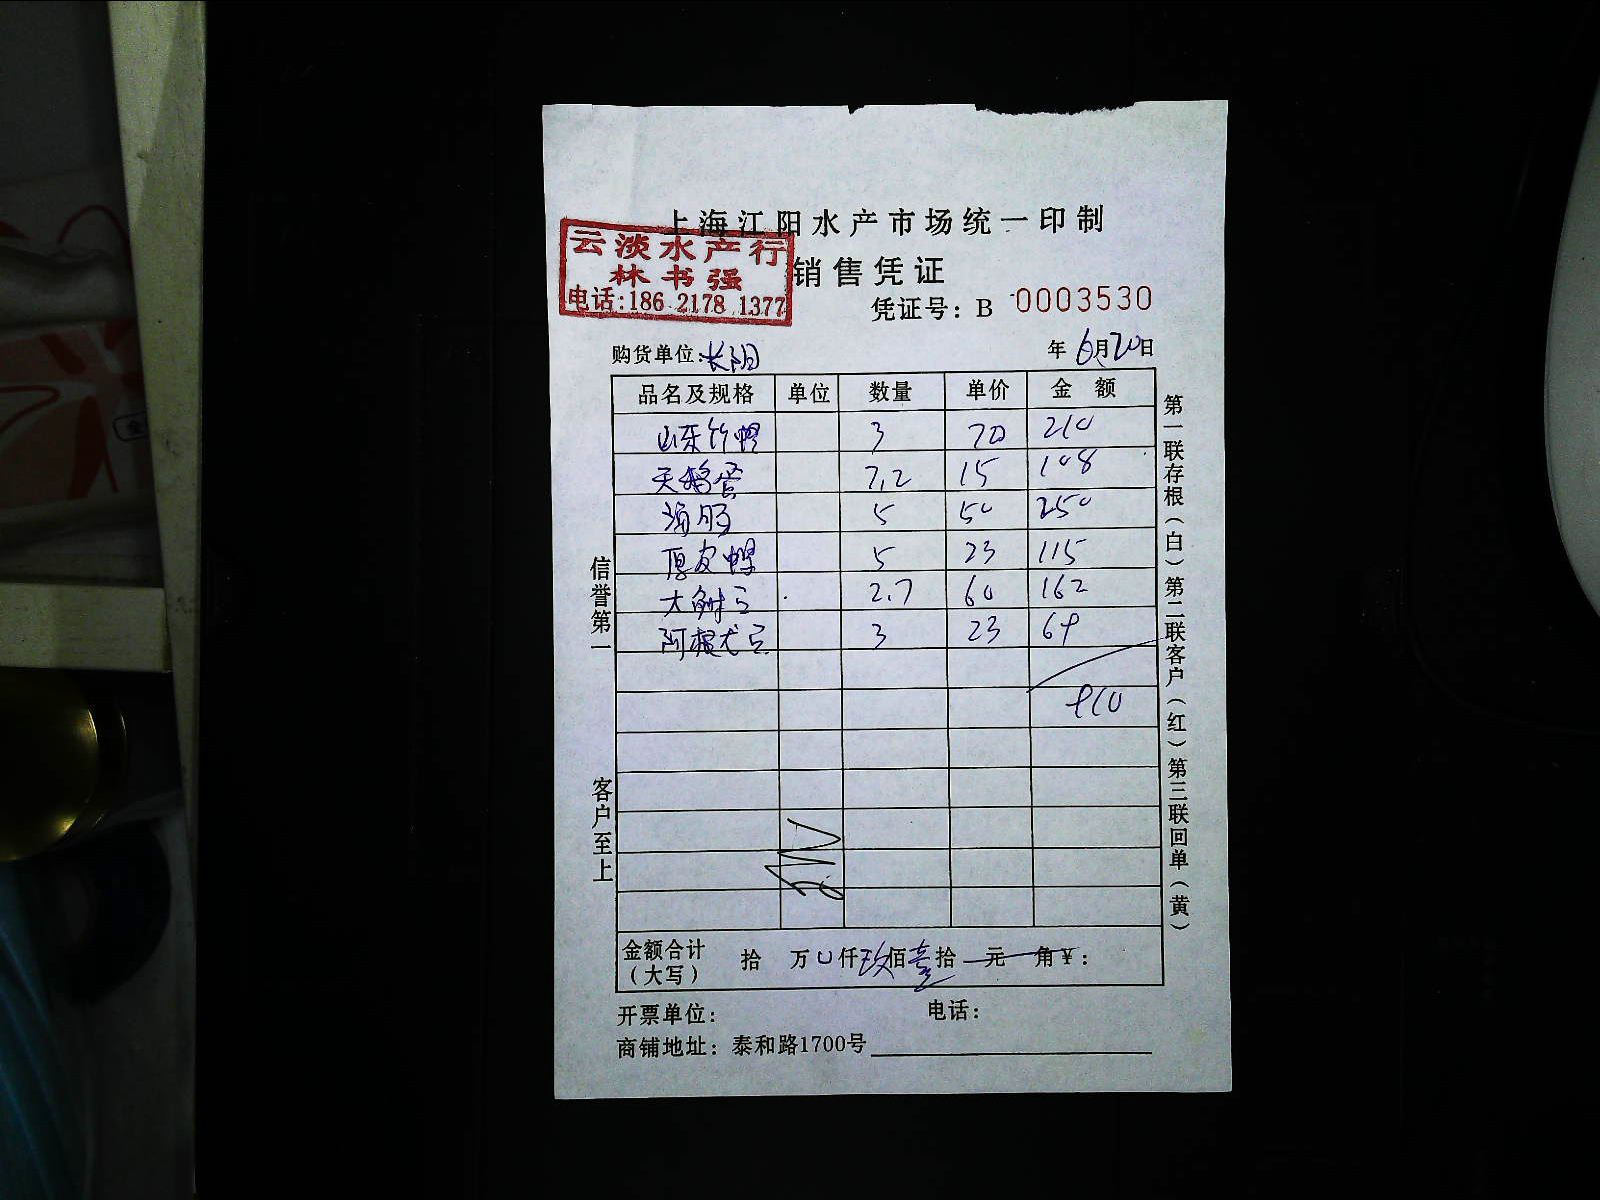 上海江阳水产市场统一印制
云淡水产行
林书强
电话:186 2178 1377
销售凭证
凭证号: B 0003530
购货单位:长阳 年 6月20日
品名及规格 单位 数量 单价 金 额
山东竹蛏 3 70 210
天鹅蛋 7.2 15 108
海肠 5 50 250
厚皮蛏 5 23 115
大 2.7 60 162
阿根 3 23 69
910
金额合计(大写) 拾 万 0 仟 玖 佰 壹 拾 元 角 ¥:
开票单位: 电话:
商铺地址: 泰和路1700号
信誉第一
客户至上
第一联存根(白)第二联客户(红)第三联回单(黄)